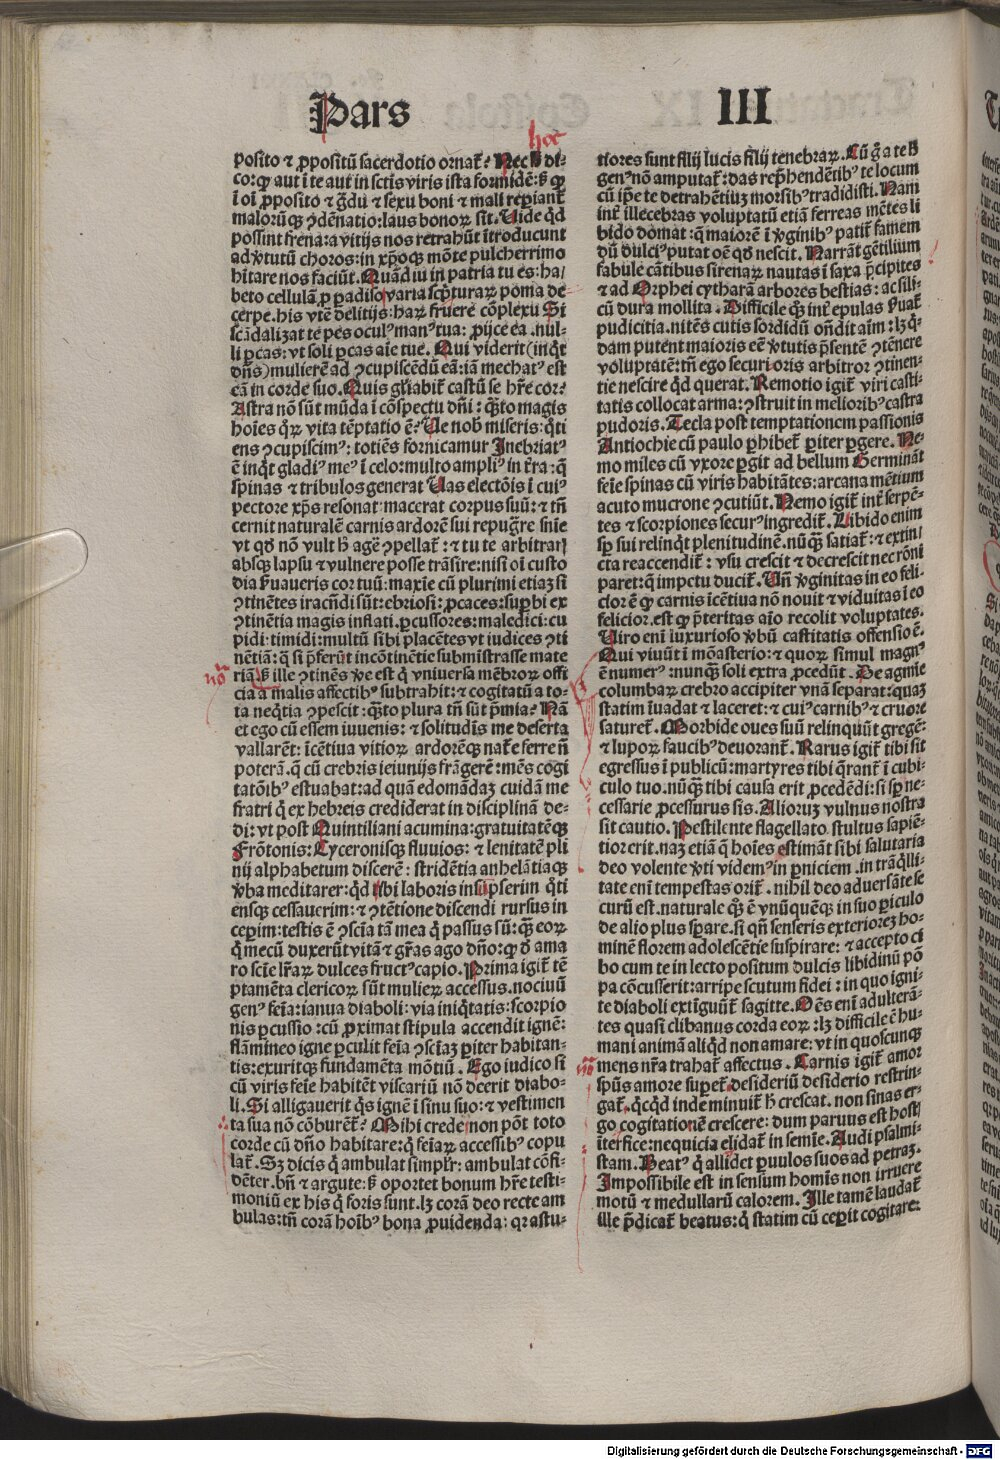 Pars III
hoc
posito ⁊ ꝓpositū sacerdotio ornat᷑? Nec h̄ di-
co: ꝙ aut ī te aut in sctis viris ista formidē: sꝫ ꝙ
ī oī ꝓposito ⁊ g̃du ⁊ sexu boni ⁊ mali repiant᷑
malorūqꝫ ꝯdēnatio: laus bonoꝝ sit. Uide qd
possint frena: a vitijs nos retrahūt ītroducunt
ad v̓tutū choros: in xp̄oqꝫ mōte pulcherrimo
hītare nos faciūt. Quādiu in patria tu es: ha/
beto cellulā ꝓ padiso varia sc̓pturaꝝ poma de-
cerpe. his vtē delitijs: haꝝ fruere cōplexu Si
scādalizat te pes oculꝰ manꝰ tua: ꝓijce ea. nul-
li ꝑcas: vt soli ꝑcas aīe tue. Qui viderit (inq̇t
dn̄s) mulierē ad ꝯcupiscēdū eā: iā mechatꝰ est
eā in corde suo. Quis gl̓iabit᷑ castū se hr̄e cor?
Astra nō sūt mūda ī cōspectu dn̄i: qꝫto magis
hoīes qꝝ vita tēptatio ē? Ue nob miseris: q̇ti
ens ꝯcupiscimꝰ: totiēs fornicamur Inebriatꝰ
ē inq̇t gladiꝰ meꝰ ī celo: multo ampliꝰ in t̄ra: q̄
spinas ⁊ tribulos generat Uas electōis ī cuiꝰ
pectore xp̄s resonat: macerat corpus suū: ⁊ tn̄
cernit naturalē carnis ardorē sui repug̃re sn̄ie
vt qd nō vult h̄ age᷑ ꝯpellat᷑: ⁊ tu te arbitrarꝭ
absqꝫ lapsu ⁊ vulnere posse trāsire: nisi oī custo
dia ẜuaueris cor tuū: maxīe cū plurimi etiaꝫ si
ꝯtinētes iracūdi sūt: ebriosi: ꝓcaces: suꝑbi ex
ꝯtinētia magis inflati. ꝑcussores: maledici: cu
pidi: timidi: multū sibi placētes vt iudices ꝯti
nētiā: q̄ si p̄ferūt incōtinētie submīstrasse mate
nō riā sꝫ ille ꝯtinēs v̓e est q̇ vniuersa mēbroꝝ offi
cia a malis affectibꝰ subtrahit: ⁊ cogitatū a to-
ta neq̇tia ꝯpescit: qꝫto plura tn̄ sūt p̄mia? Nā
et ego cū essem iuuenis: ⁊ solitudīs me deserta
vallarēt: īcētiua vitioꝝ ardorēqꝫ nat᷑e ferre n̄
poterā. q̄ cū crebris ieiunijs frāgerē: mēs cogi
tatōibꝰ estuabat: ad quā edomādaꝫ cuidā me
fratri q̇ ex hebreis crediderat in disciplinā de-
di: vt post Quintiliani acumina: grauitatēqꝫ
Frōtonis: Cyceronisqꝫ fluuios: ⁊ lenitatē pli
nij alphabetum discerē: stridētia anhelātiaqꝫ
v̓ba meditarer: qd ibi laboris insūpserim q̇ti
ensqꝫ cessauerim: ⁊ ꝯtētione discendi rursus in
ceꝑim: testis ē ꝯscīa tā mea q̇ passus sū: qꝫ eoꝝ
q̇ mecū duxerūt vitā ⁊ gr̄as ago dn̄o: ꝙ d̄ ama
ro scīe lr̄aꝝ dulces fructꝰ capio. Prima igit᷑ tē
ptamēta clericoꝝ sūt mulieꝝ accessus. nociuū
genꝰ feīa: ianua diaboli: via iniq̇tatis: scorpio
nis ꝑcussio: cū ꝓximat stipula accendit ignē:
flāmineo igne ꝑculit feīa ꝯsciaꝫ ꝑiter habitan-
tis: exuritqꝫ fundamēta mōtiū. Ego iudico si
cū viris feīe habitēt viscariū nō deerit diabo-
li. Si alligauerit q̇s ignē ī sinu suo: ⁊ vestimen
ta sua nō cōburēt᷑? Mihi crede: non pōt toto
corde cū dn̄o habitare: q̇ feīaꝝ accessibꝰ copu
lat᷑. Sꝫ dicis q̇ ambulat simplr̓: ambulat cōfi-
dēter. bn̄ ⁊ argute: sꝫ oportet bonum hr̄e testi-
moniū ex his q̇ foris sunt. lꝫ corā deo recte am
bulas: tn̄ corā hoībꝰ bona ꝓuidenda: qꝛ astu-
tiores sunt filij lucis filij tenebraꝝ. Cū g̃ a te h̄
genꝰ nō amputat᷑: das rep̄hendētibꝰ te locum
cū ip̄e te detrahētiuꝫ morsibꝰ tradidisti. Nam
int᷑ illecebras voluptatū etiā ferreas mētes li
bido domat: q̄ maiorē ī v̓ginibꝰ patit᷑ famem
dū dulciꝰ putat oē qd nescit. Narrāt gētilium
fabule cātibus sirenaꝝ nautas ī saxa p̄cipites
⁊ ad Orphei cytharā arbores bestias: ac sili-
cū dura mollita. Difficile qꝫ int᷑ epulas ẜuat᷑
pudicitia. nitēs cutis sordidū on̄dit aīm: lꝫ q̇-
dam putent maioris eē v̓tutis p̄sentē ꝯtēnere
voluptatē: tn̄ ego securioris arbitror ꝯtinen-
tie nescire qd querat. Remotio igit᷑ viri casti-
tatis collocat arma: ꝯstruit in melioribꝰ castra
pudoris. Tecla post temptationem passionis
Antiochie cū paulo ꝓhibet᷑ ꝑiter ꝑgere. Ne-
mo miles cū vxore ꝑgit ad bellum Germināt
feīe spinas cū viris habitātes: arcana mētium
acuto mucrone ꝯcutiūt. Nemo igit᷑ int᷑ serpē-
tes ⁊ scorpiones securꝰ ingredit᷑. Libido enim
sꝑ sui relinq̇t plenitudinē. nūqꝫ satiat᷑: ⁊ extin/
cta reaccendit᷑: vsu crescit ⁊ decrescit nec rōni
paret: q̄ impetu ducit᷑. Un̄ v̓ginitas in eo feli-
cior ē ꝙ carnis īcētiua nō nouit ⁊ viduitas ī eo
felicior. est ꝙ p̄teritas aīo recolit voluptates.
Uiro enī luxurioso v̓bū castitatis offensio ē.
Qui viuūt ī mōasterio: ⁊ quoꝝ simul magnꝰ
ē numerꝰ: nunqꝫ soli extra ꝓcedūt. De agmie
columbaꝝ crebro accipiter vnā separat: quaꝫ
statim īuadat ⁊ laceret: ⁊ cuiꝰ carnibꝰ ⁊ cruore
saturet᷑. Morbide oues suū relinquūt gregē:
⁊ lupoꝝ faucibꝰ deuorant᷑. Rarus igit᷑ tibi sit
egressus ī publicū: martyres tibi q̄rant᷑ ī cubi-
culo tuo. nūqꝫ tibi causa erit ꝓcedēdi: si sꝑ ne-
cessarie ꝓcessurus sis. Alioruꝫ vulnus nostra
sit cautio. Pestilente flagellato stultus sapiē-
tior erit. naꝫ etiā q̄ hoīes estimāt sibi salutaria
deo volente v̓ti videmꝰ in ꝑniciem. in trāq̇lli-
tate enī tempestas orit᷑. nihil deo aduersāte se
curū est. naturale qꝫ ē vnūquēqꝫ in suo ꝑiculo
de alio plus sꝑare. si qn̄ senseris exterioreꝫ ho-
minē florem adolescētie suspirare: ⁊ accepto ci
bo cum te in lecto positum dulcis libidinū pō
pa cōcusserit: arripe scutum fidei: in quo igni-
te diaboli extīguūt᷑ sagitte. Oēs enī adulterā-
tes quasi clibanus corda eoꝝ: lꝫ difficile ē hu-
mani animā aliqd non amare: vt in quocunqꝫ
nō mens nr̄a trahat᷑ affectus. Carnis igit᷑ amor
sp̄us amore suꝑet᷑. desideriū desiderio restrin-
gat᷑. qcqd inde minuit᷑ h̄ crescat. non sinas er-
go cogitationē crescere: dum paruus est hostꝭ
īterfice: nequicia elidat᷑ in semīe. Audi psalmi-
stam. Beatꝰ q̇ allidet ꝑuulos suos ad petraꝫ.
Impossibile est in sensum homīs non irruere
motū ⁊ medullarū calorem. Ille tamē laudat᷑
ille p̄dicat᷑ beatus: q̇ statim cū ceꝑit cogitare:
Digitalisierung gefördert durch die Deutsche Forschungsgemeinschaft - DFG